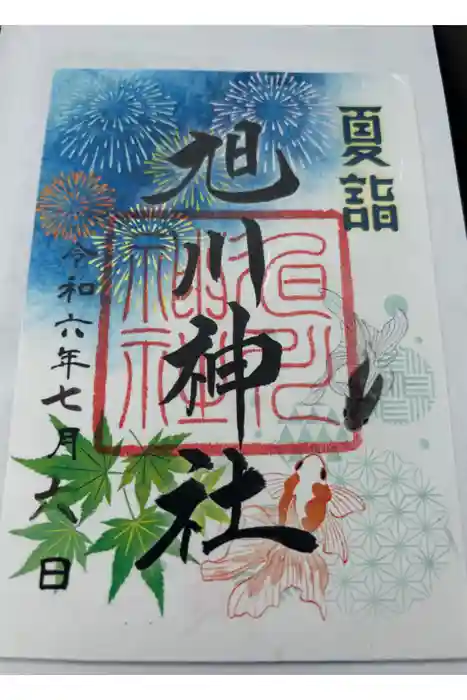 夏詣
旭川神社
旭川神社
令和六年七月六日